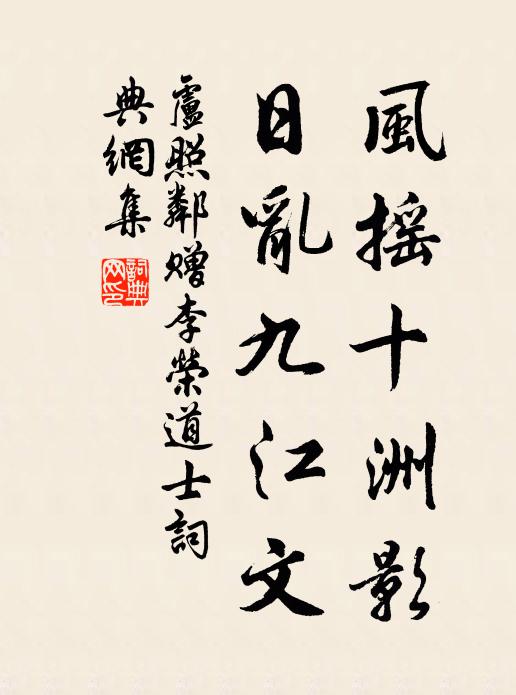 風摇十洲影
日亂九江文
盧照鄰赠李榮道士詞
典網集
詞典
网印